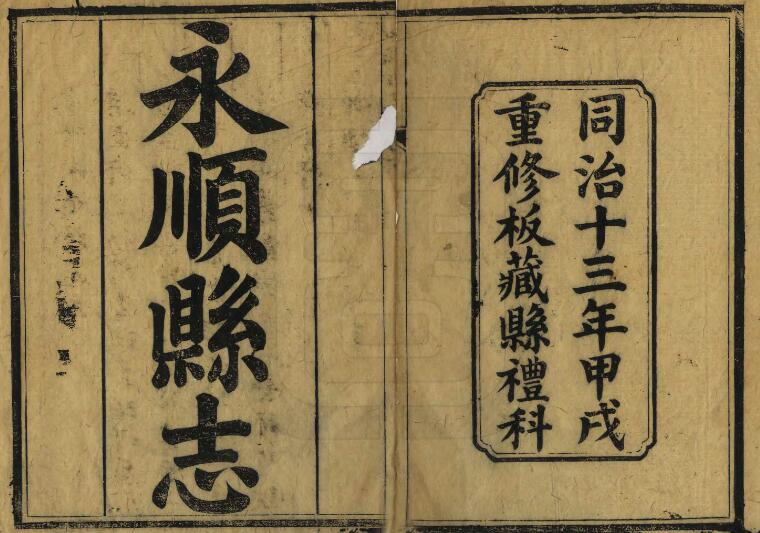 同治十三年甲戌
重修板藏縣禮科
永順縣志